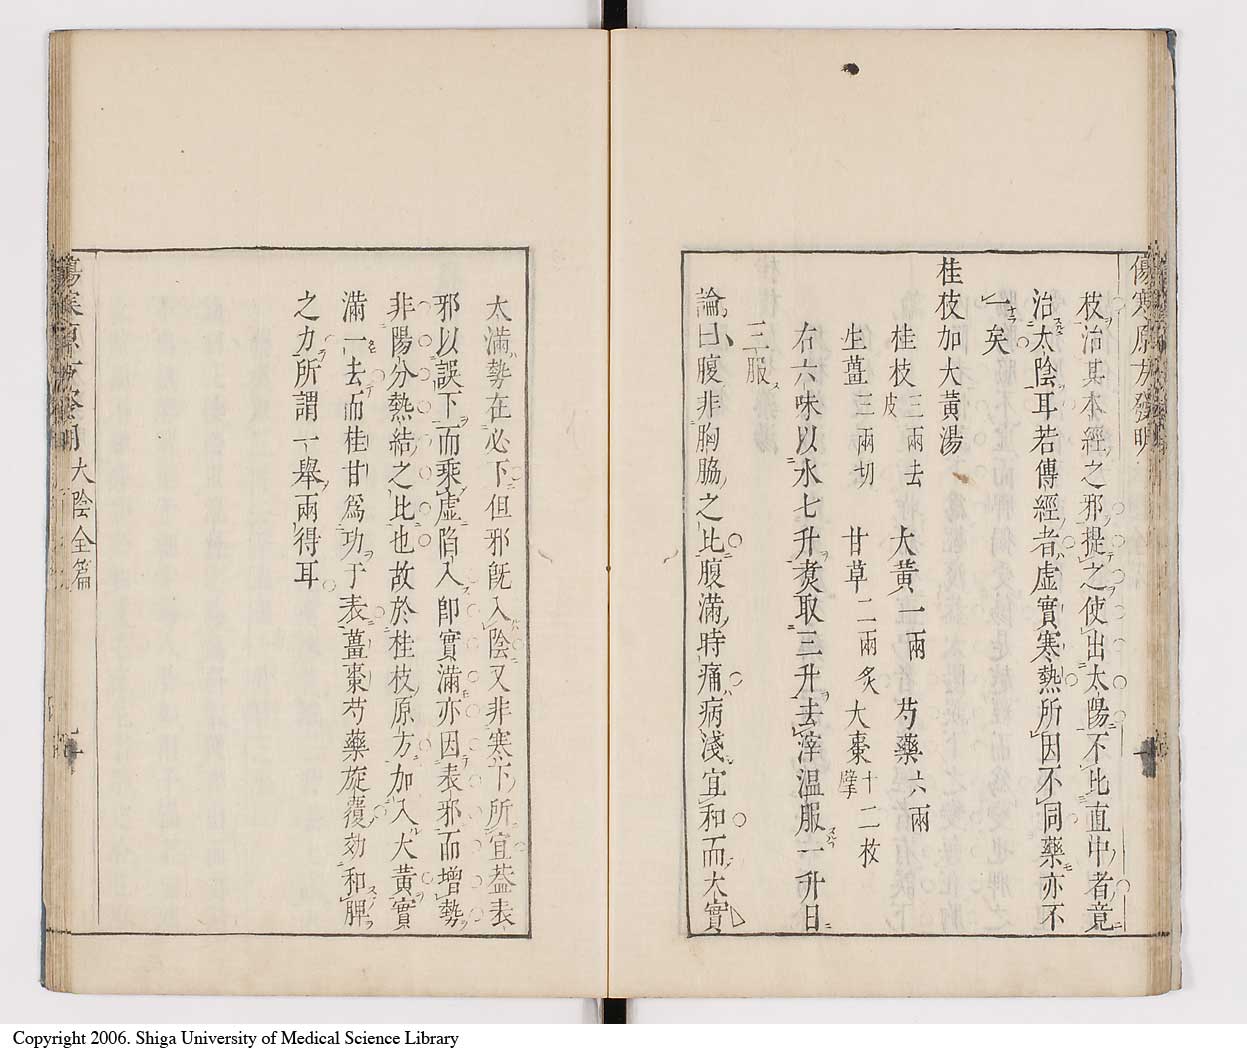 傷寒原方發明
枝治其本經之邪提之使出太陽不比直中者竟
治太陰耳若傳經者虛實寒熱所因不同藥亦不
一矣
桂枝加大黃湯
桂枝三兩去皮 大黃一兩 芍藥六兩
生薑三兩切 甘草二兩炙 大棗十二枚擘
右六味以水七升煑取三升去滓溫服一升日
三服
論曰腹非胸脇之比腹滿時痛病淺宜和而大實
太滿勢在必下但邪旣入陰又非寒下所宜葢表
邪以誤下而乘虛陷入卽實滿亦因表邪而增勢
非陽分熱結之比也故於桂枝原方加入大黃實
滿一去而桂甘爲功于表薑棗芍藥旋覆効和脾
之力所謂一舉兩得耳
傷寒原方發明 太陰全篇
Copyright 2006. Shiga University of Medical Science Library